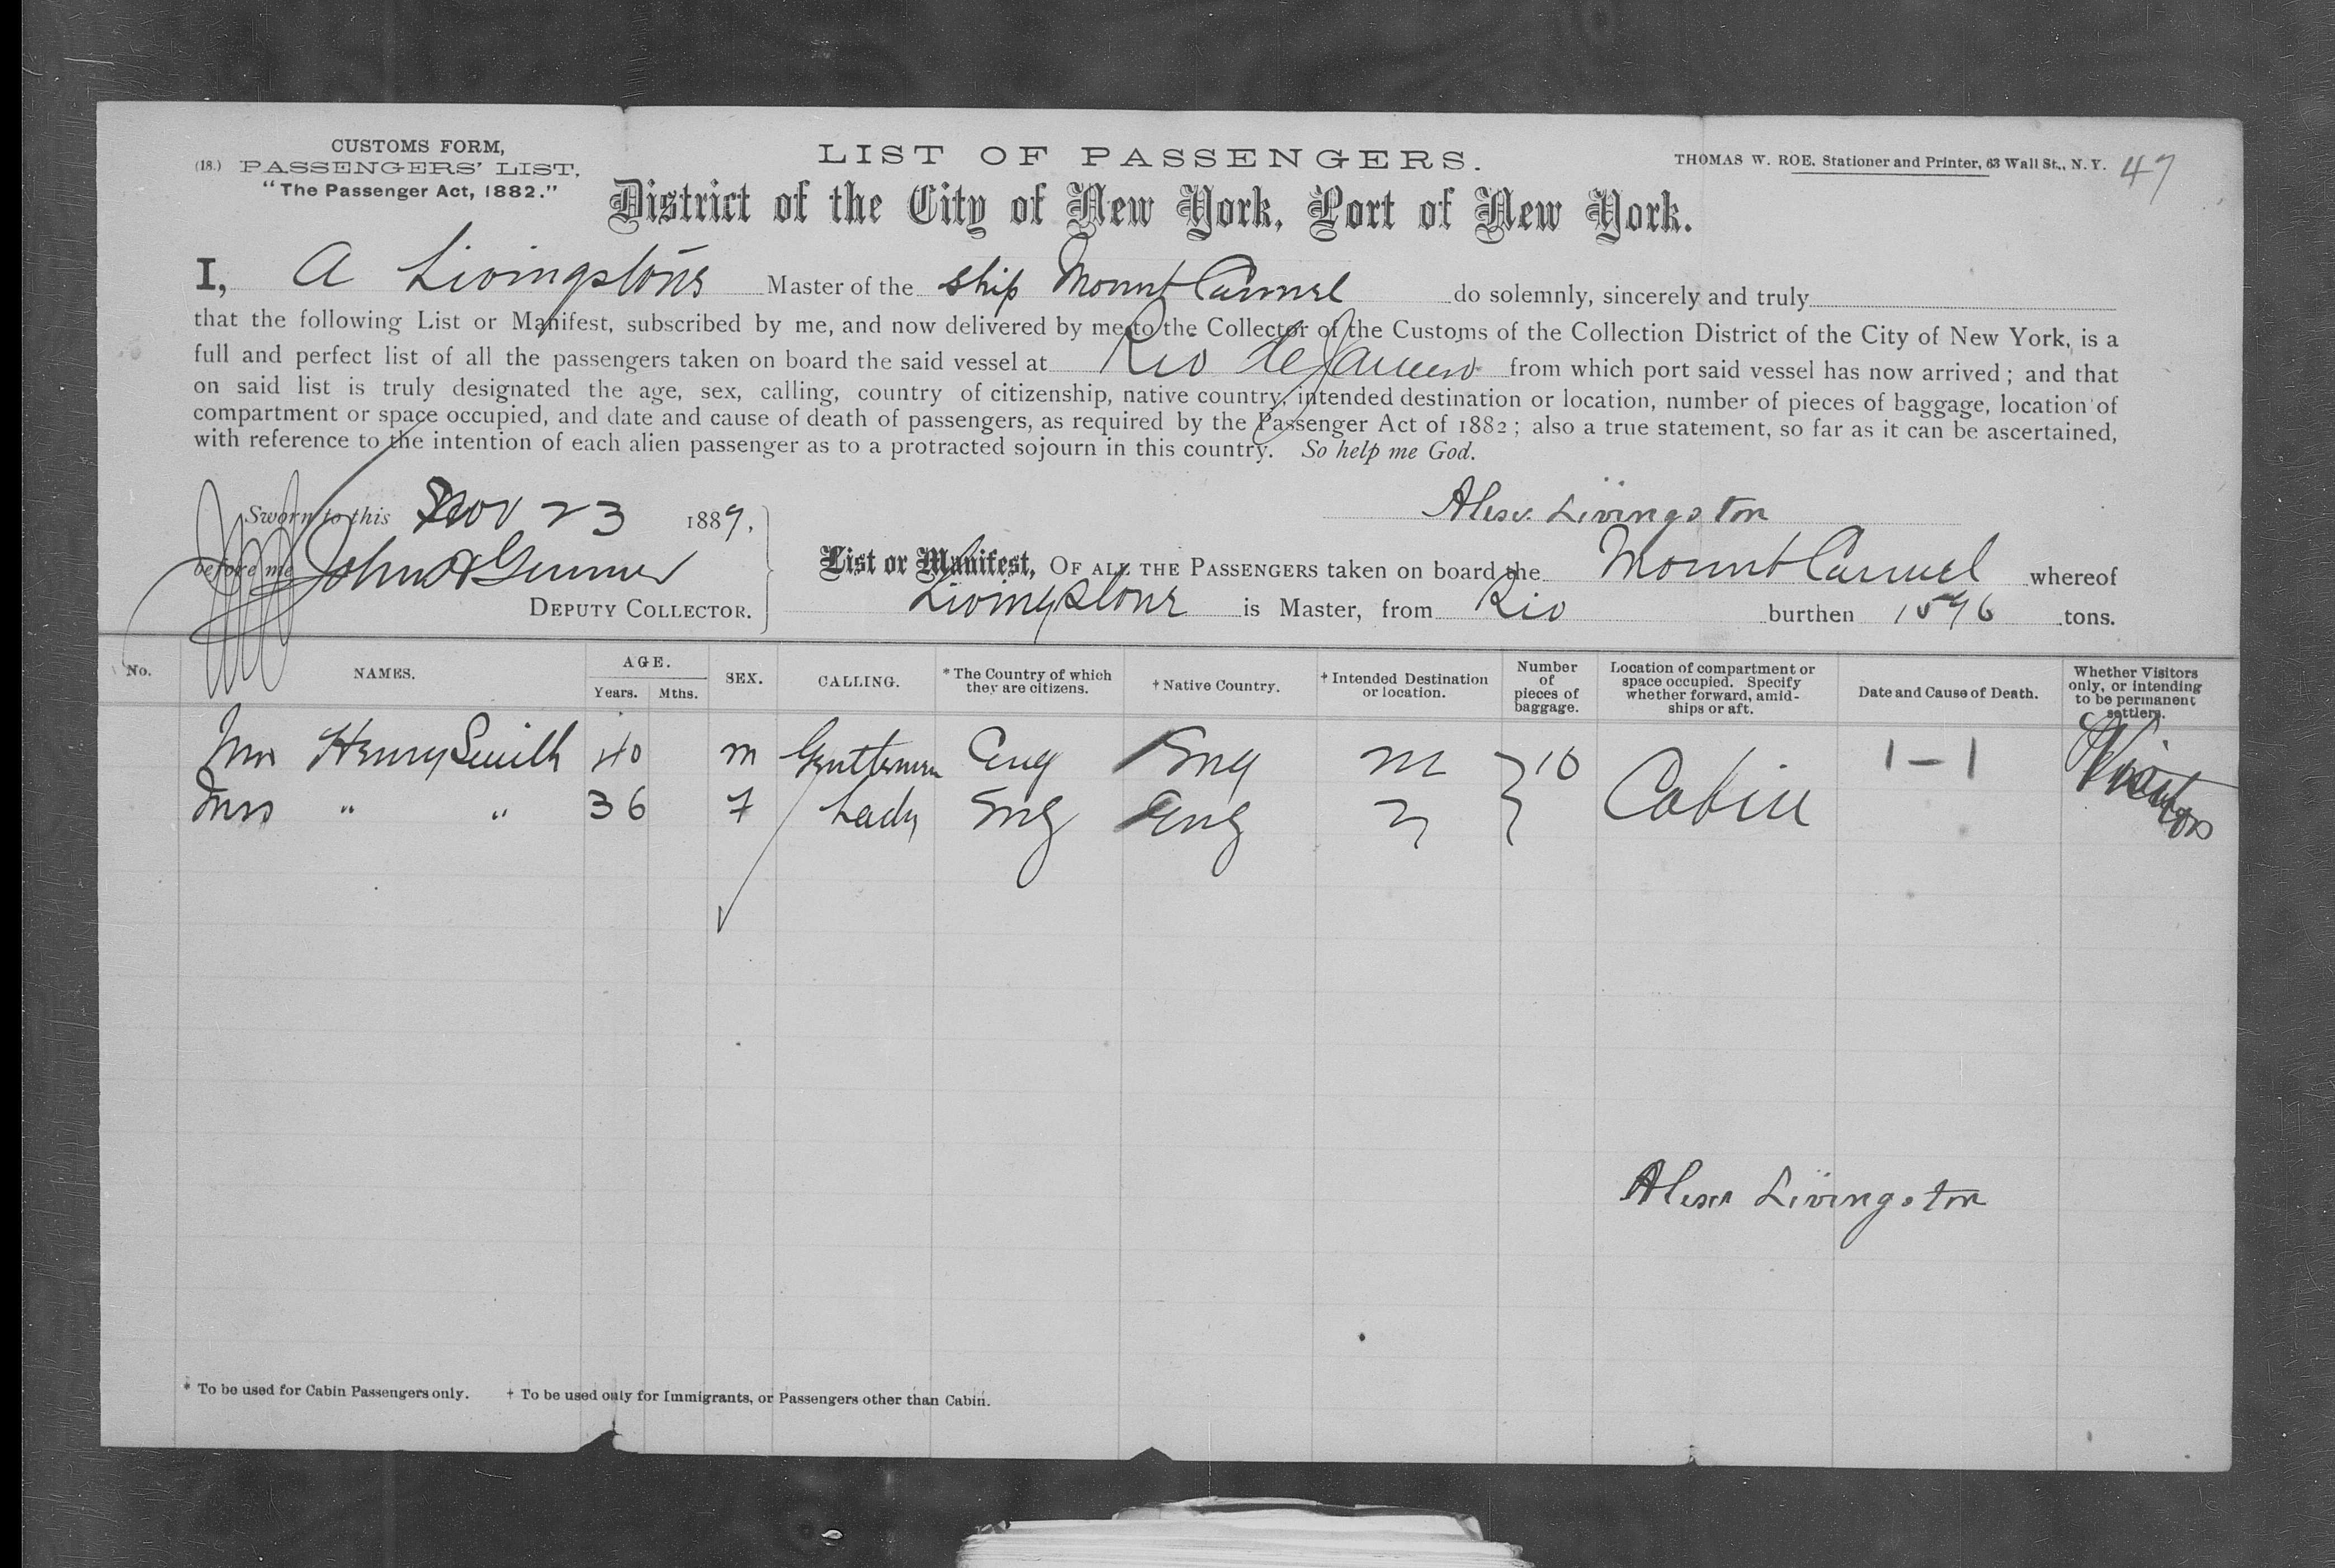 CUSTOMS FORM,
(18.) PASSENGERS' LIST,
"The Passenger Act, 1882."
LIST OF PASSENGERS.
THOMAS W. ROE, Stationer and Printer, 63 Wall St., N.Y. 47
District of the City of New York, Port of New York.
I, A Livingstone Master of the ship Mount Carmel do solemnly, sincerely and truly
that the following List or Manifest, subscribed by me, and now delivered by me to the Collector of the Customs of the Collection District of the City of New York, is a
full and perfect list of all the passengers taken on board the said vessel at Rio de Janeiro from which port said vessel has now arrived; and that
on said list is truly designated the age, sex, calling, country of citizenship, native country, intended destination or location, number of pieces of baggage, location of
compartment or space occupied, and date and cause of death of passengers, as required by the Passenger Act of 1882; also a true statement, so far as it can be ascertained,
with reference to the intention of each alien passenger as to a protracted sojourn in this country. So help me God.
Sworn to this Nov 23 1889,
before me John
DEPUTY COLLECTOR.
Alexr. Livingston
List or Manifest, OF ALL THE PASSENGERS taken on board the Mount Carmel whereof
Livingstone is Master, from Rio burthen 1596 tons.
No. NAMES. AGE. Years. Mths. SEX. CALLING. * The Country of which they are citizens. † Native Country. † Intended Destination or location. Number of pieces of baggage. Location of compartment or space occupied. Specify whether forward, amidships or aft. Date and Cause of Death. Whether Visitors only, or intending to be permanent settlers.
Henry Smith 40 m Gentleman Eng Eng 10 Cabin 1-1 Visitors
Mrs " " 36 f Lady Eng Eng
Alexr Livingston
* To be used for Cabin Passengers only. † To be used only for Immigrants, or Passengers other than Cabin.